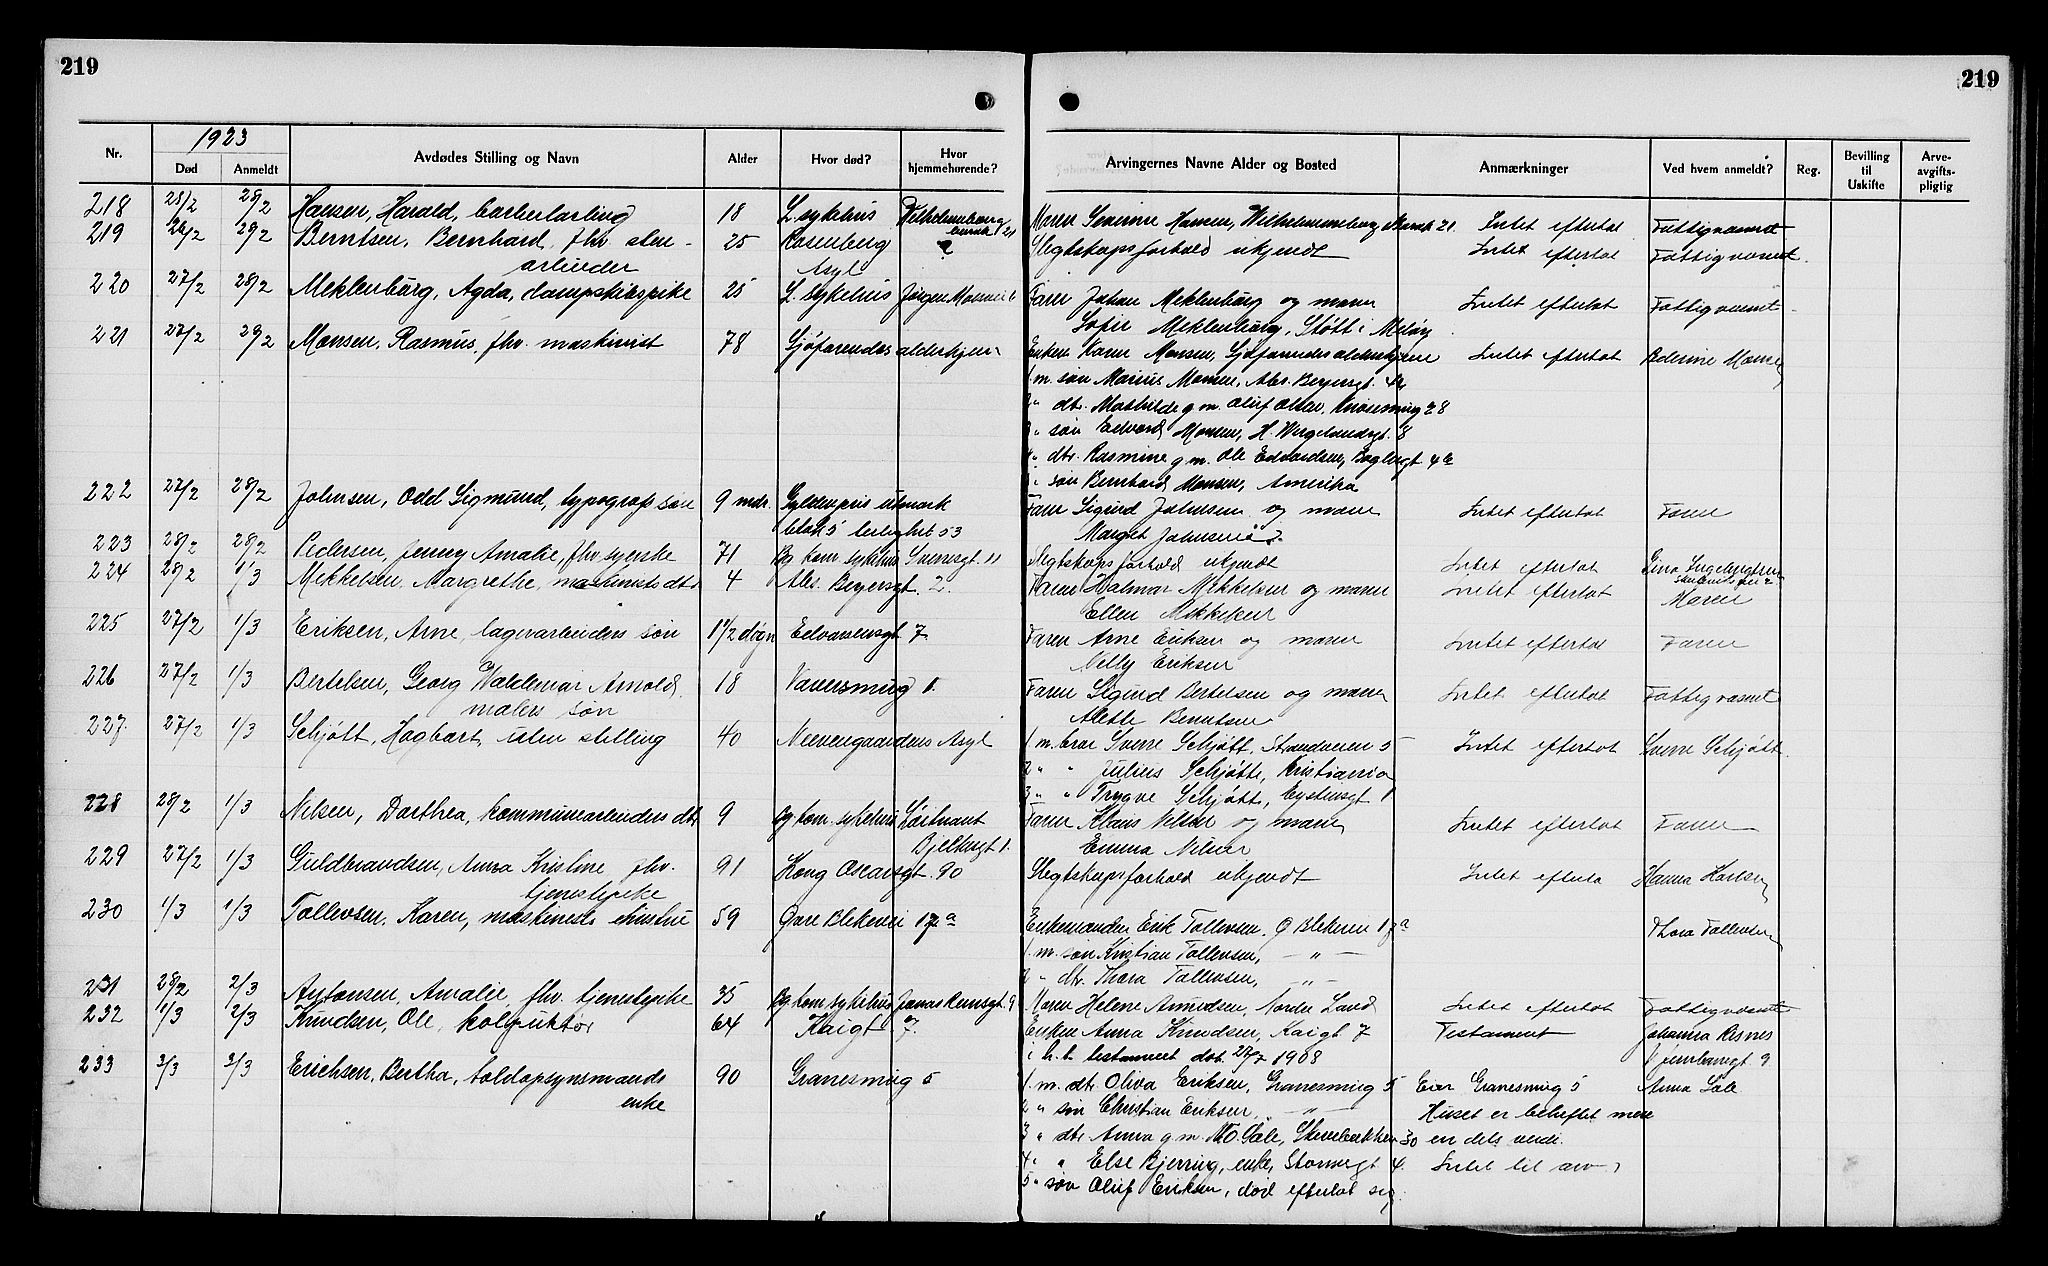 219
219
1923
Nr. Død Anmeldt Avdødes Stilling og Navn Alder Hvor død? Hvor hjemmehørende? Arvingernes Navne Alder og Bosted Anmærkninger Ved hvem anmeldt? Reg. Bevilling til Uskifte Arve-avgifts-pligtig
218 28/2 28/2 Hansen, Harald, barberlærling 18 L. sykehus Moren Severine Hansen, Wilhelmineborg 21 Intet efterlat Fattigvæsnet
219 26/2 28/2 Berntsen, Bernhard, fhv. sten- 25 Rosenberg ? Slegtskapsforhold ukjendt Intet efterlat Fattigvæsnet.
arbeider Asyl
220 27/2 28/2 Meklenburg, Agda, dampskibspike 25 L. sykehus Faren Johan Meklenburg og moren Intet efterlat Fattigvæsnet
Sofie Meklenburg, Støtt i Meløy
221 27/2 28/2 Monsen, Rasmus, fhv. maskinist 78 Sjøfarendes alderhjem Enken Karen Monsen, Sjøfarendes aldershjem Intet efterlat Monsen
1 m. søn Marius Monsen, Abs. Beyersgt. 4a
2 " dtr. Mathilde g.m. Oluf Olsen, 28
3 " søn Edvard Monsen, H. Wergelandsgt. 8
4 " dtr. Rasmine g.m. Ole Edvardsen, Baglergt 4b
5 " søn Bernhard Monsen, Amerika
222 27/2 28/2 Johnsen, Odd Sigmund, typografs søn 9 mdr. Gyldenpris utmark Faren Sigurd Johnsen og moren Intet efterlat Faren
blok 5 leilighet 53 Margit Johnsen
223 28/2 28/2 Pedersen, Jenny Amalie, fhv. syerske 71 Bg kom. sykehus Sverresgt. 11 Slegtskapsforhold ukjendt Intet efterlat Lina Ingebrigtsen
224 28/2 1/3 Mikkelsen, Margrethe, maskinists dtr 4 Abs. Beyersgt. 2. Faren Halmar Mikkelsen og moren Intet efterlat Moren
Ellen Mikkelsen
225 27/2 1/3 Eriksen, Arne, lagerarbeiders søn 1 1/2 døgn Edvardsensgt 7 Faren Arne Eriksen og moren Intet efterlat Faren
Nelly Eriksen
226 27/2 1/3 Bertelsen, Georg Waldemar Arnold, 18 Vaversmug 1. Faren Sigurd Bertelsen og moren Intet efterlat Fattigvæsnet
malers søn Alette Berntsen
227. 27/2 1/3 Schjøtt, Hagbart, uten stilling 40 Neevengaardens Asyl 1 m. bror Sverre Schjøtt, Strandveien 5 Intet efterlat Sverre Schjøtt
2 " " Julius Schjøtt, Kristiania
3 " " Trygve Schjøtt, Eystensgt 1
228 28/2 1/3 Nilsen, Dorthea, kommunearbeiders dtr 9 Bg kom. sykehus Løitnant Faren Klaus Nilsen og moren Intet efterlat Faren
Bjelkesgt 1. Emma Nilsen
229 27/2 1/3 Guldbrandsen, Anna Kristine fhv. 91 Kong Oscarsgt. 90 Slegtskapsforhold ukjendt Intet efterla Hanna Karlsen
tjenestepike
230 1/3 1/3 Tollevsen, Karen, maskinists hustru 59 Øvre Blekevei 17a Enkemanden Erik Tollevsen, Ø Blekevei 17a Thora Tollevsen
1 m. søn Kristian Tollevsen, — " —
2 " dtr. Thora Tollevsen, — " —
231 28/2 2/3 Antonsen, Amalie, fhv. tjenestepike 35 Bg kom. sykehus Jonas Reinsgt. 9 Moren Helene Amundsen, Nordre Land Intet efterlat Fattigvæsnet
232 1/3 2/3 Knudsen, Ole, kolportør 64 Kaigt 7. Enken Anna Knudsen, Kaigt 7 Testament Johanna Risnes
i h.t. testament dat. 27/7 1908
233 2/3 2/3 Erichsen, Bertha, toldopsynsmands 90 Granesmug 5 1 m. dtr. Oliva Eriksen, Granesmug 5 Eier Granesmug 5 Anna Sole
enke 2 " søn Christian Eriksen, — " — Huset er beheftet mere
3 " dtr Anna g.m. M.O. Sole, Skivebakken 30 en dets verdi.
4 " " Else Bjerring, enke, Stormsgt 4. Intet til arv
5 " søn Oluf Eriksen, død efterlat sig